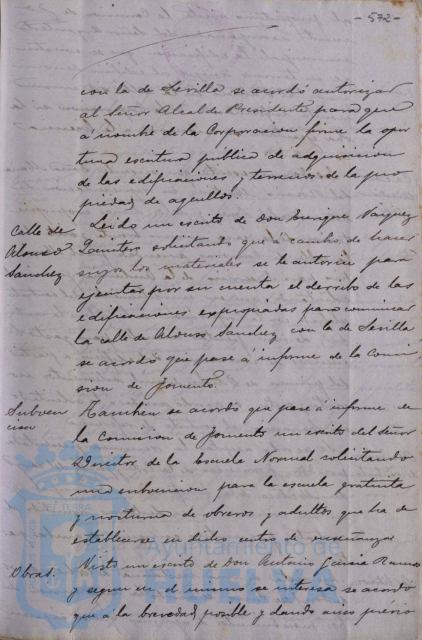 -572-
con la de Sevilla se acordó autorizar
al Señor Alcalde Presidente para que
á nombre de la Corporacion firme la opor
tuna escritura publica de adquisicion
de las edificaciones y terrenos de la pro
piedad de aquellos.
Calle de
Alonso
Sanchez
Leido un escrito de Don Enrique Vazquez
solicitando que á cambio de hacer
suyos los materiales se le autorice para
ejecutar por su cuenta el derribo de las
edificaciones expropiadas para comunicar
la calle de Alonso Sanchez con la de Sevilla
se acordó que pase á informe de la Comi
sion de Fomento.
Subven
cion
Tambien se acordó que pase á informe de
la Comision de Fomento un escrito del Señor
Director de la Escuela Normal solicitando
una subvencion para la escuela gratuita
y nocturna de obreros y adultos que ha de
establecerse en dicho centro de enseñanza
Obras.
Visto un escrito de Don Antonio Garcia Ramos
y segun en el mismo se interesa se acordó
que á la brevedad posible y dando aviso previo
Ayuntamiento de
HUELVA